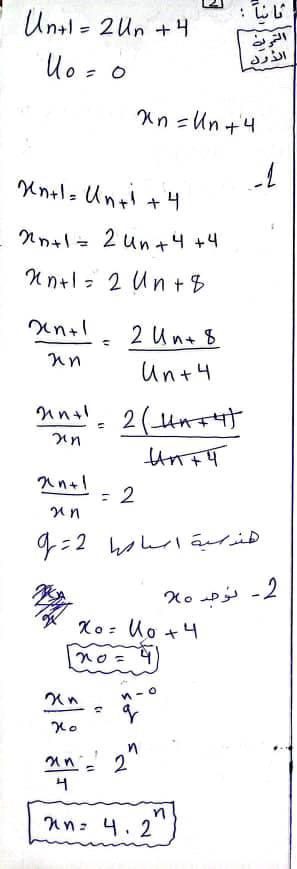 2
ثانياً :
التمرين
الأول
Un+1 = 2Un + 4
U0 = 0
xn = Un + 4
1-
xn+1 = Un+1 + 4
xn+1 = 2Un + 4 + 4
xn+1 = 2Un + 8
xn+1/xn = 2Un + 8/Un + 4
xn+1/xn = 2(Un + 4)/Un + 4
xn+1/xn = 2
هندسية اساسها q = 2
2- نوجد x0
x0 = U0 + 4
x0 = 4
xn/x0 = q^n-0
xn/4 = 2^n
xn = 4 . 2^n